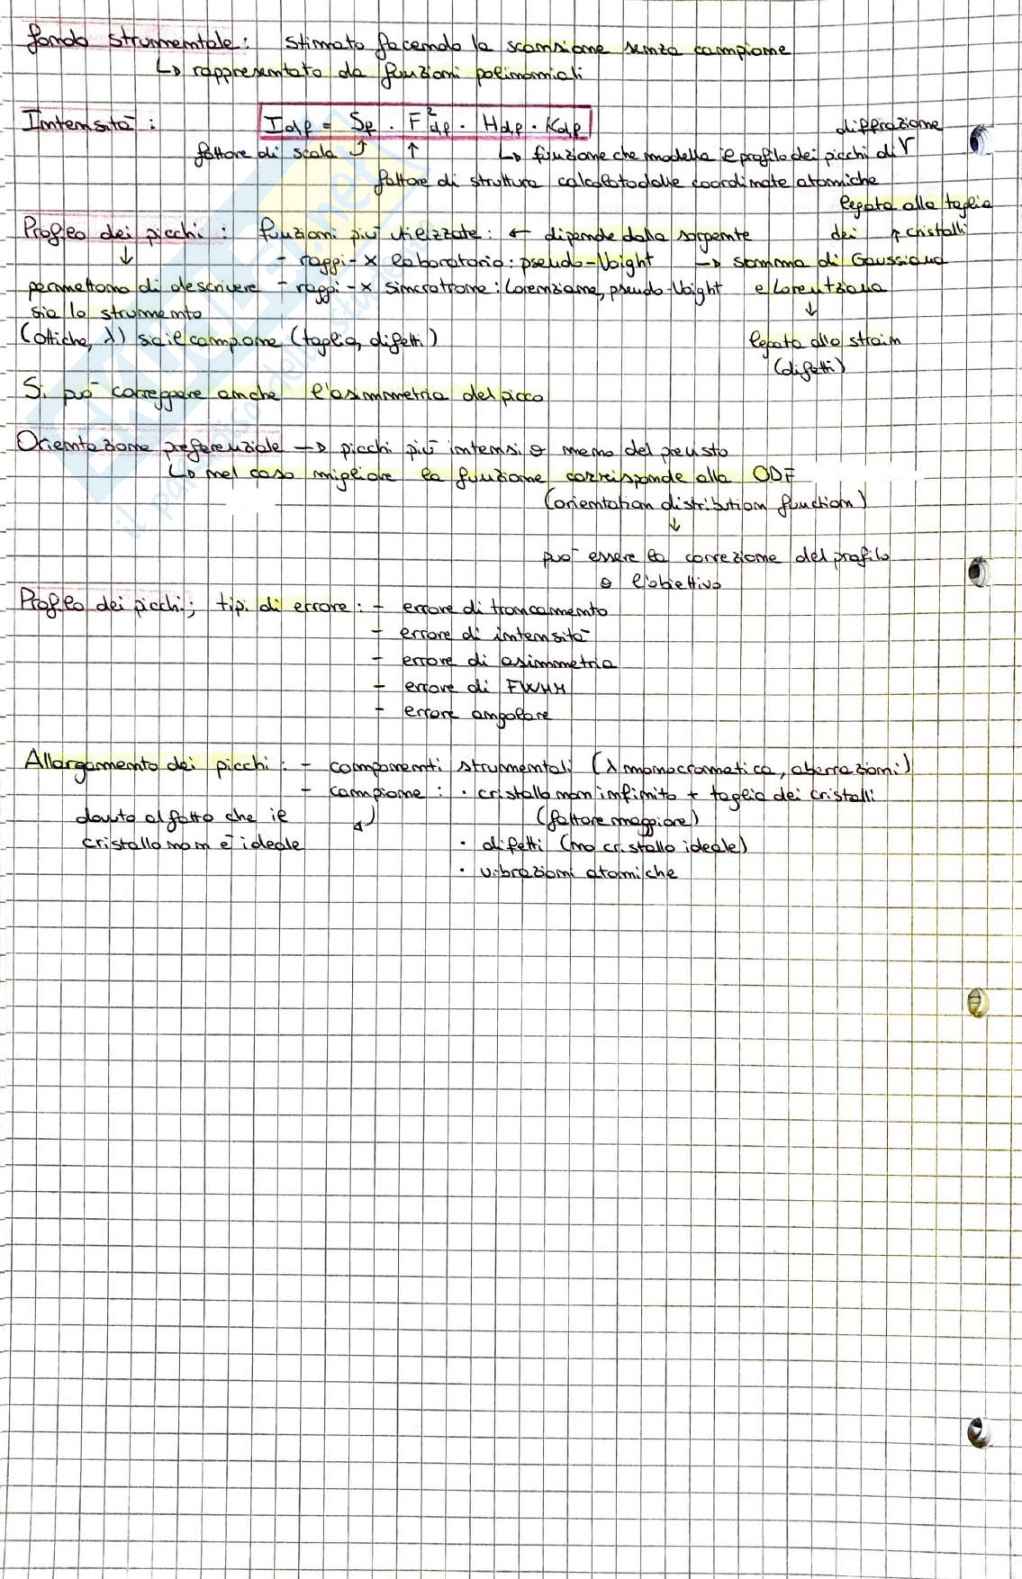 fondo strumentale: stimato facendo la scansione senza campione
↳ rappresentato da funzioni polinomiali
Intensità: Idf = Sf · F²df · Hdf · Kdf
diffrazione
fattore di scala ↑ ↑ ↳ funzione che modella il profilo dei picchi di
fattore di struttura calcolato dalle coordinate atomiche
legata alla taglia
Profilo dei picchi: funzioni più utilizzate: ← dipende dalla sorgente dei ↑ cristalli
↓ - raggi-X laboratorio: pseudo-Voight → somma di Gaussiana
permettono di descrivere - raggi-X sincrotrone: Lorenziana, pseudo-Voight e Lorentziana
sia lo strumento ↓
(ottiche, λ) sia il campione (taglia, difetti) legata allo strain
(difetti)
Si può correggere anche l'asimmetria del picco
Orientazione preferenziale → picchi più intensi o meno del previsto
↳ nel caso migliore la funzione corrisponde alla ODF
(orientation distribution function)
↓
può essere la correzione del profilo
o l'obiettivo
Profilo dei picchi; tipi di errore: - errore di troncamento
- errore di intensità
- errore di asimmetria
- errore di FWHM
- errore angolare
Allargamento dei picchi: - componenti strumentali (λ monocromatica, aberrazioni)
- campione: · cristallo non infinito + taglia dei cristalli
dovuto al fatto che il (fattore maggiore)
cristallo non è ideale · difetti (no cristallo ideale)
· vibrazioni atomiche